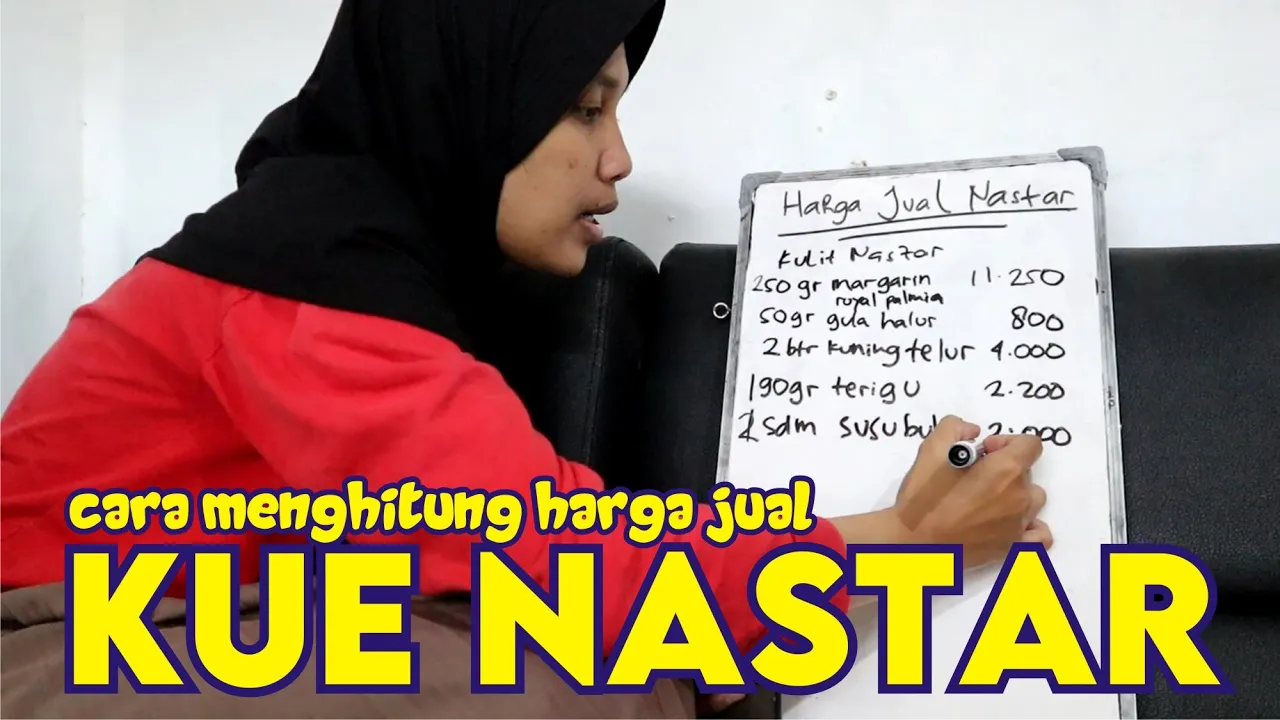 Harga Jual Nastar
Kulit Nastar
250 gr margarin 11.250
royal palmia
50gr gula halus 800
2 btr kuning telur 4.000
190gr terigu 2.200
sdm susu 2.000
cara menghitung harga jual
KUE NASTAR